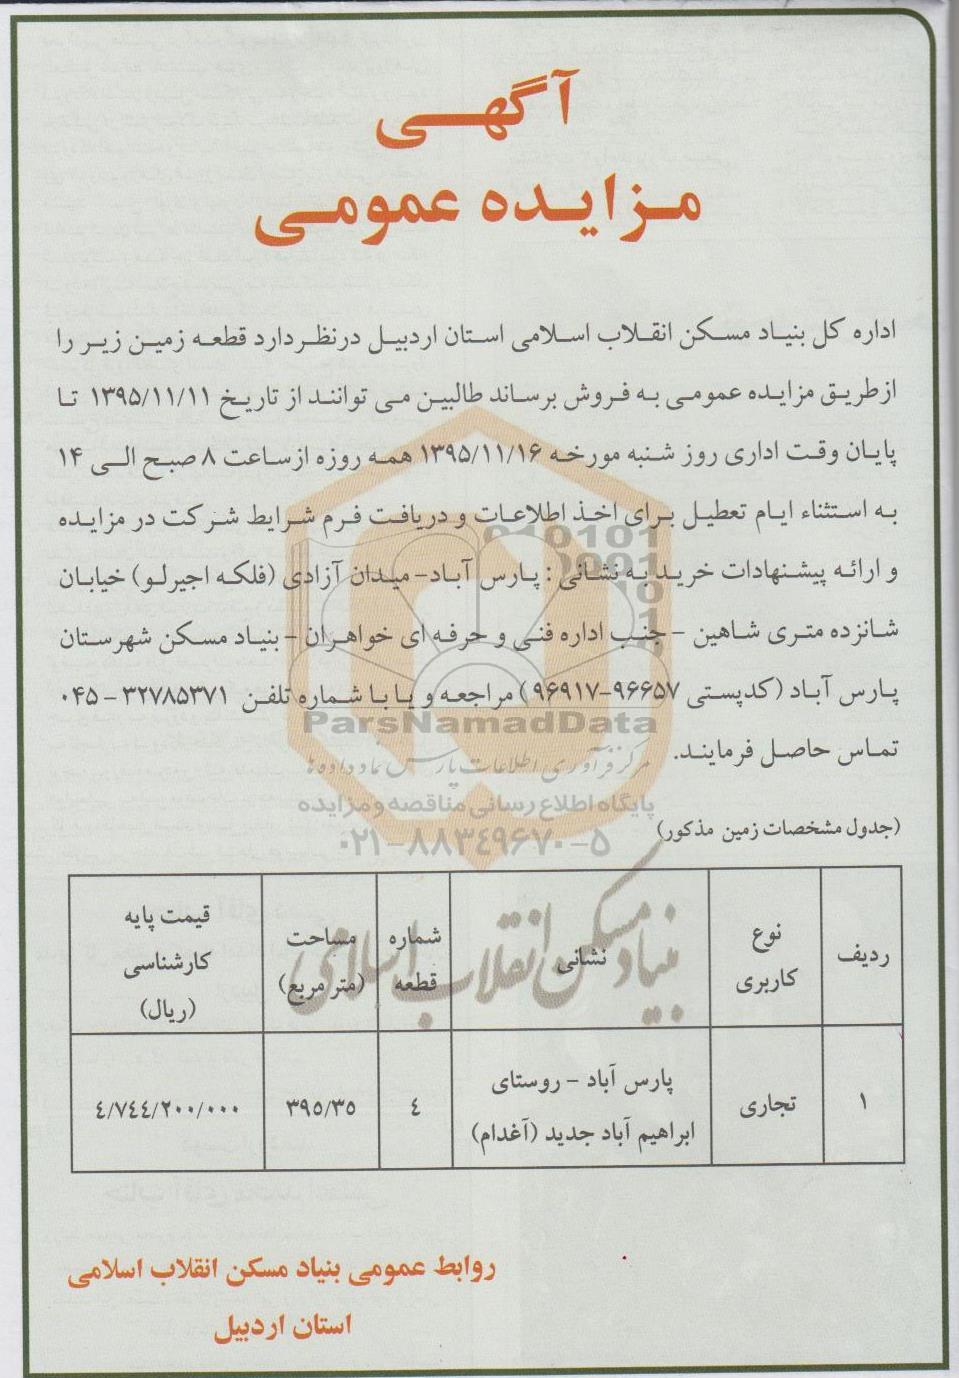 آگهی
مزایده عمومی
اداره کل بنیاد مسکن انقلاب اسلامی استان اردبیل درنظر دارد قطعه زمین زیر را
ازطریق مزایده عمومی به فروش برساند طالبین می توانند از تاریخ ۱۳۹۵/۱۱/۱۱ تا
پایان وقت اداری روز شنبه مورخه ۱۳۹۵/۱۱/۱۶ همه روزه ازساعت ۸ صبح الی ۱۴
به استثناء ایام تعطیل برای اخذ اطلاعات و دریافت فرم شرایط شرکت در مزایده
و ارائه پیشنهادات خرید به نشانی : پارس آباد- میدان آزادی (فلکه اجیرلو) خیابان
شانزده متری شاهین - جنب اداره فنی و حرفه ای خواهران - بنیاد مسکن شهرستان
پارس آباد (کدپستی ۹۶۶۵۷-۹۶۹۱۷) مراجعه و یا با شماره تلفن ۳۲۷۸۵۳۷۱ - ۰۴۵
تماس حاصل فرمایند.
(جدول مشخصات زمین مذکور)
ردیف نوع کاربری نشانی شماره قطعه مساحت (متر مربع) قیمت پایه کارشناسی (ریال)
۱ تجاری پارس آباد - روستای ابراهیم آباد جدید (آغدام) ٤ ۳۹۵/۳۵ ٤/۷٤٤/۲۰۰/۰۰۰
روابط عمومی بنیاد مسکن انقلاب اسلامی
استان اردبیل
010101
0001
10
1
ParsNamadData
مرکز فرآوری اطلاعات پارس نماد داده ها
پایگاه اطلاع رسانی مناقصه و مزایده
۰۲۱-۸۸۳۴۹۶۷۰-۵
بنیاد مسکن انقلاب اسلامی